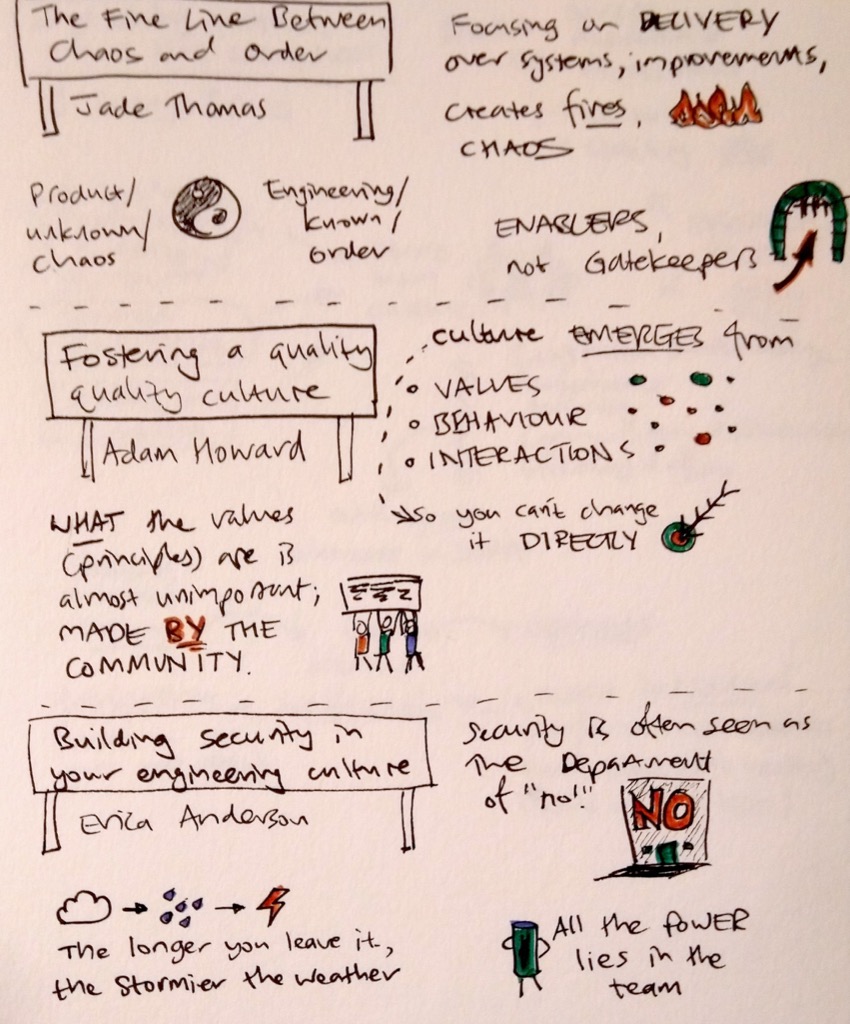 The Fine Line Between
Chaos and order
Jade Thomas
Focusing on DELIVERY
over systems, improvements,
creates fires,
CHAOS
Product/
unknown/
chaos
Engineering/
known/
order
ENABLERS,
not Gatekeepers
Fostering a quality
quality culture
Adam Howard
culture EMERGES from
VALUES
BEHAVIOUR
INTERACTIONS
so you can't change
it DIRECTLY
WHAT the values
(principles) are is
almost unimportant;
MADE BY THE
COMMUNITY.
Building security in
your engineering culture
Erica Anderson
Security is often seen as
the Department
of "no!"
NO
The longer you leave it,
the stormier the weather
All the POWER
lies in the
team